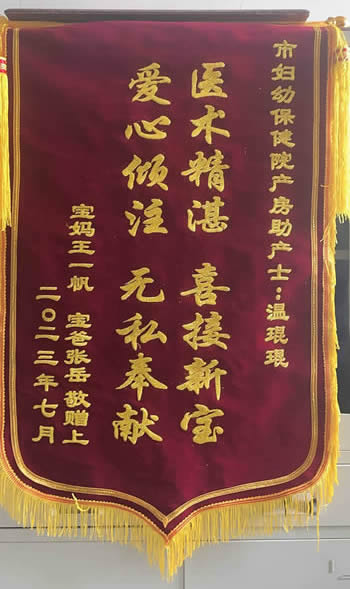 市妇幼保健院产房助产士：温琨琨
医术精湛 喜接新宝
爱心倾注 无私奉献
宝妈王一帆 宝爸张岳 敬赠上
二〇二三年七月